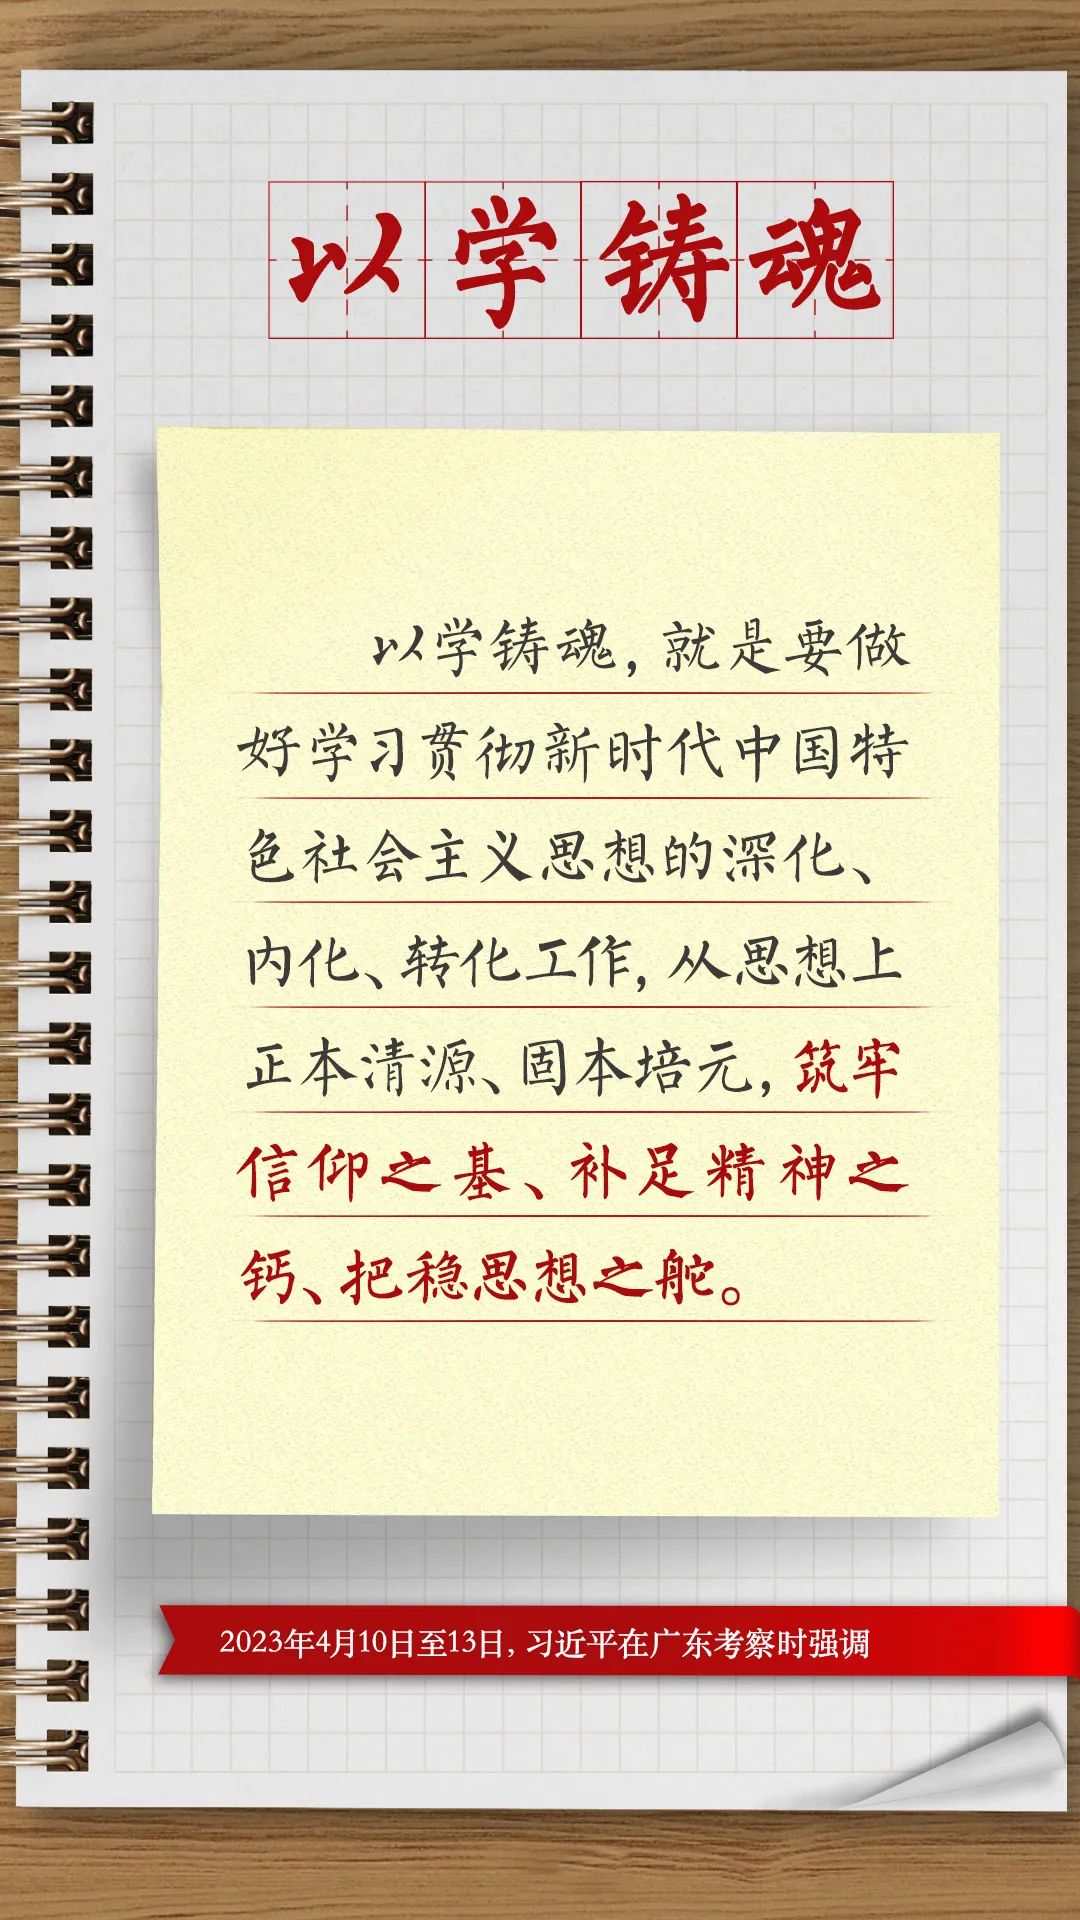 以学铸魂
以学铸魂，就是要做
好学习贯彻新时代中国特
色社会主义思想的深化、
内化、转化工作，从思想上
正本清源、固本培元，筑牢
信仰之基、补足精神之
钙、把稳思想之舵。
2023年4月10日至13日，习近平在广东考察时强调